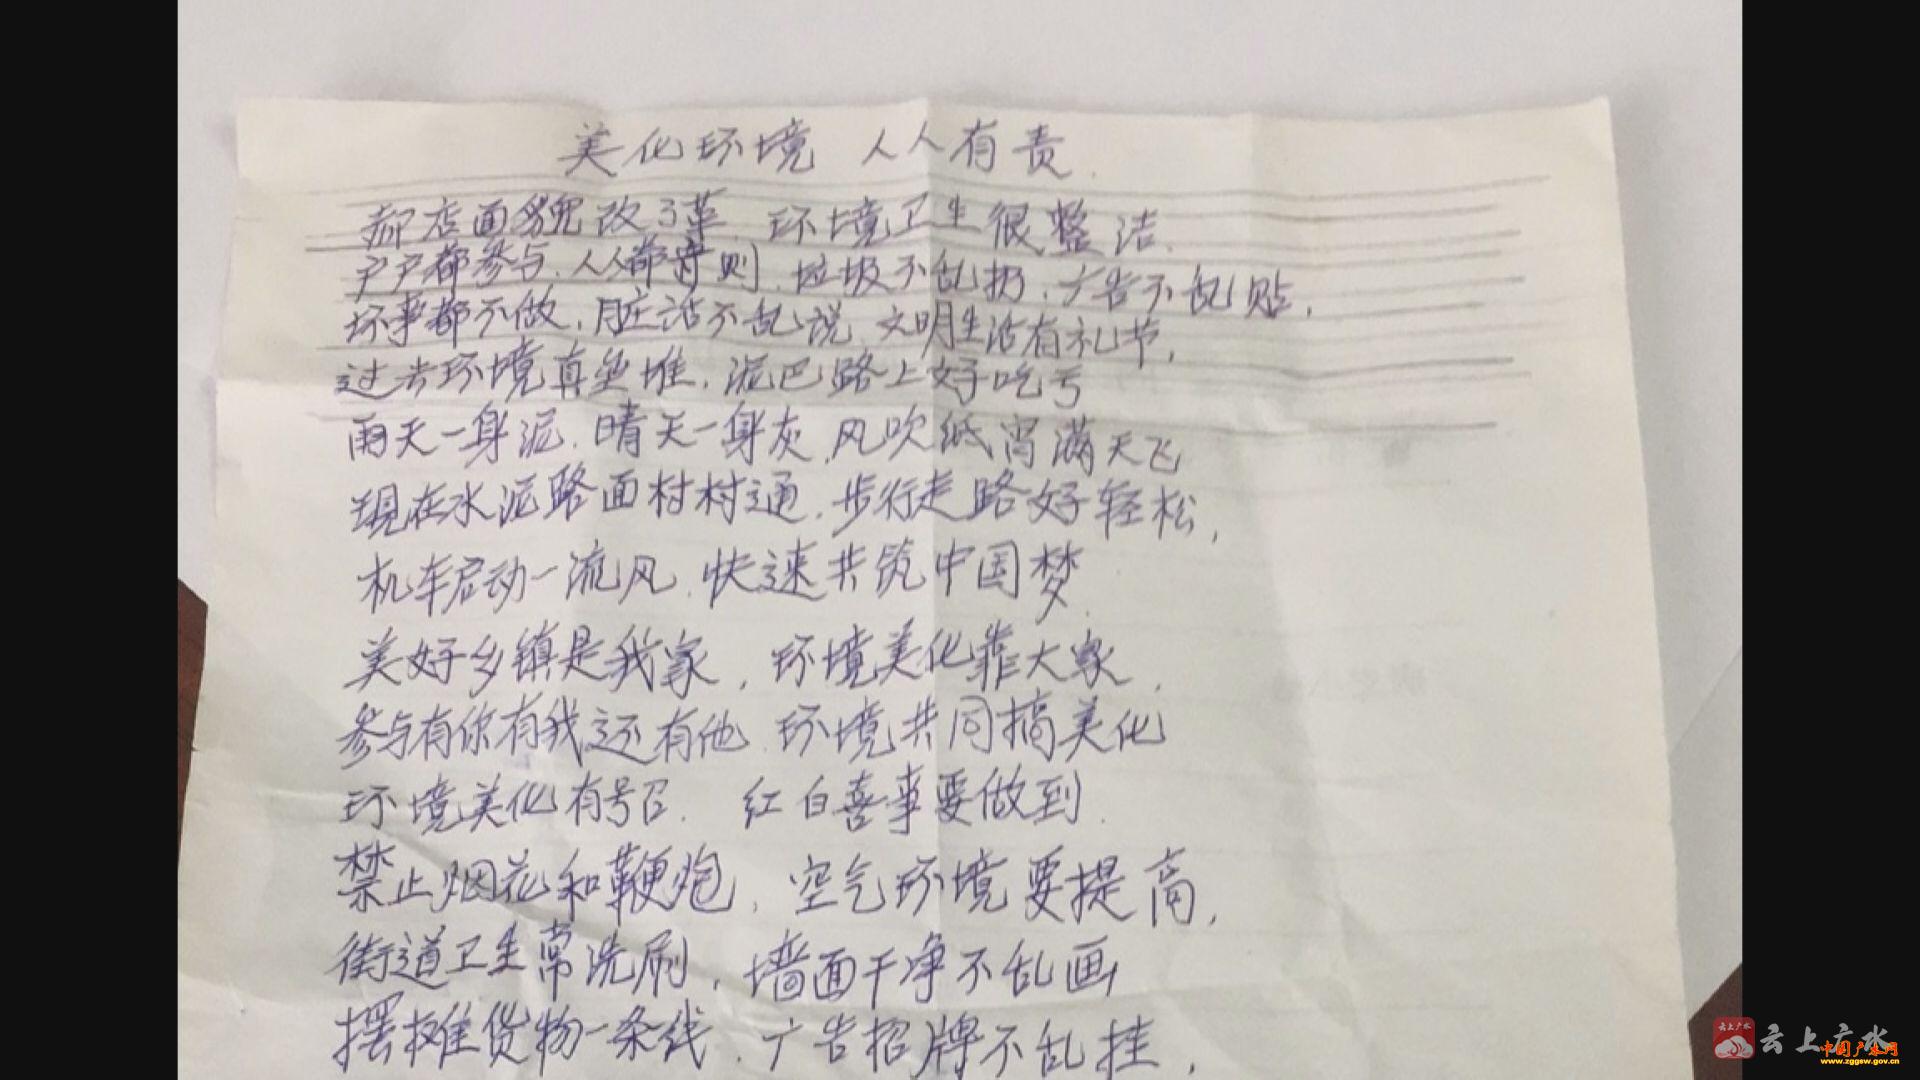 美化环境 人人有责.
郝店面貌改了革,环境卫生很整洁.
户户都参与,人人都守则,垃圾不乱扔,广告不乱贴,
坏事都不做,脏话不乱说,文明生活有礼节,
过去环境真垒堆,泥巴路上好吃亏
雨天一身泥,晴天一身灰,风吹纸宵满天飞
现在水泥路面村村通,步行走路好轻松,
机车启动一流风,快速共筑中国梦.
美好乡镇是我家,环境美化靠大家,
参与有你有我还有他,环境共同搞美化
环境美化有号召.红白喜事要做到.
禁止烟花和鞭炮,空气环境要提高,
街道卫生常洗刷,墙面干净不乱画
摆摊货物一条线,广告招牌不乱挂,
云上广水
云上广水
中国广水网
www.zggsw.gov.cn